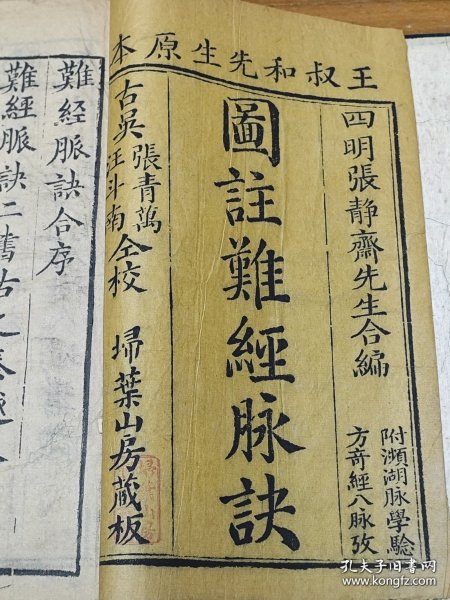 王叔和先生原本
四明張靜齋先生合編
附瀕湖脉學驗
方竒經八脉攷
圖註難經脉訣
古吳
張青萬
汪斗南
仝校
掃葉山房藏板
難經脈訣合序
難經脈訣二書古之
孔夫子旧书网
www.kongfz.com